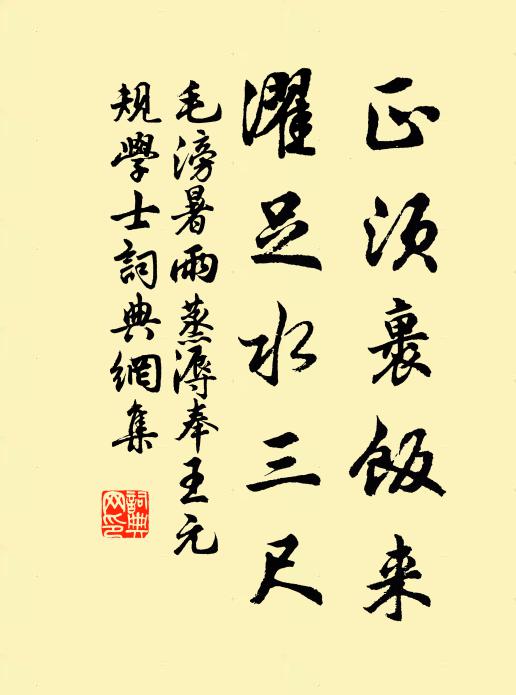 正须裹飯来
濯足水三尺
毛滂暑雨蒸溽奉王元
規學士詞典網集
詞典
网印